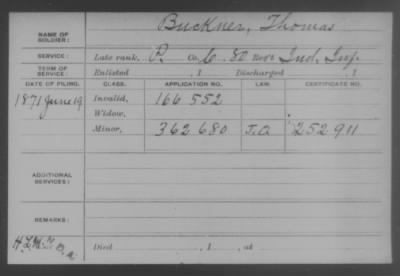 NAME OF SOLDIER: Buckner, Thomas
SERVICE: Late rank, P. Co. 80 Reg't Ind. Inf.
TERM OF SERVICE: Enlisted , 1 Discharged , 1
DATE OF FILING. CLASS. APPLICATION NO. LAW. CERTIFICATE NO.
1871 June 19 Invalid, 166 552
Widow,
Minor, 362 680 252 911
ADDITIONAL SERVICES:
REMARKS:
Died , 1 , at